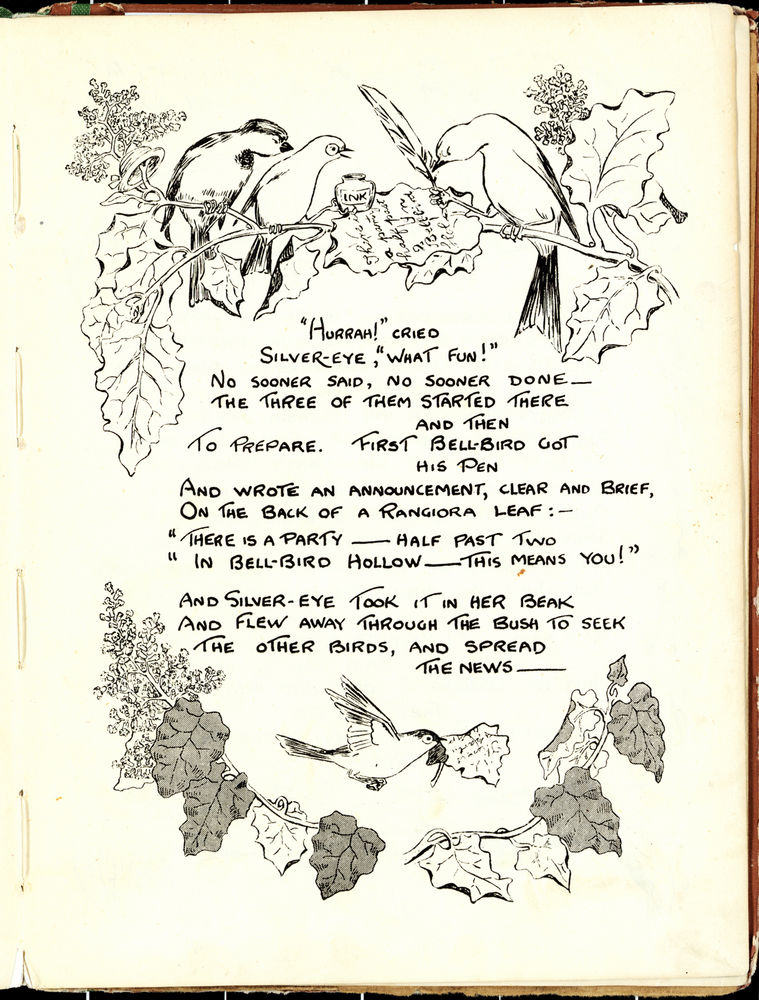 INK
"HURRAH!" CRIED
SILVER-EYE, "WHAT FUN!"
NO SOONER SAID, NO SOONER DONE—
THE THREE OF THEM STARTED THERE
AND THEN
TO PREPARE. FIRST BELL-BIRD GOT
HIS PEN
AND WROTE AN ANNOUNCEMENT, CLEAR AND BRIEF,
ON THE BACK OF A RANGIORA LEAF:—
"THERE IS A PARTY — HALF PAST TWO
" IN BELL-BIRD HOLLOW — THIS MEANS YOU!"
AND SILVER-EYE TOOK IT IN HER BEAK
AND FLEW AWAY THROUGH THE BUSH TO SEEK
THE OTHER BIRDS, AND SPREAD
THE NEWS —